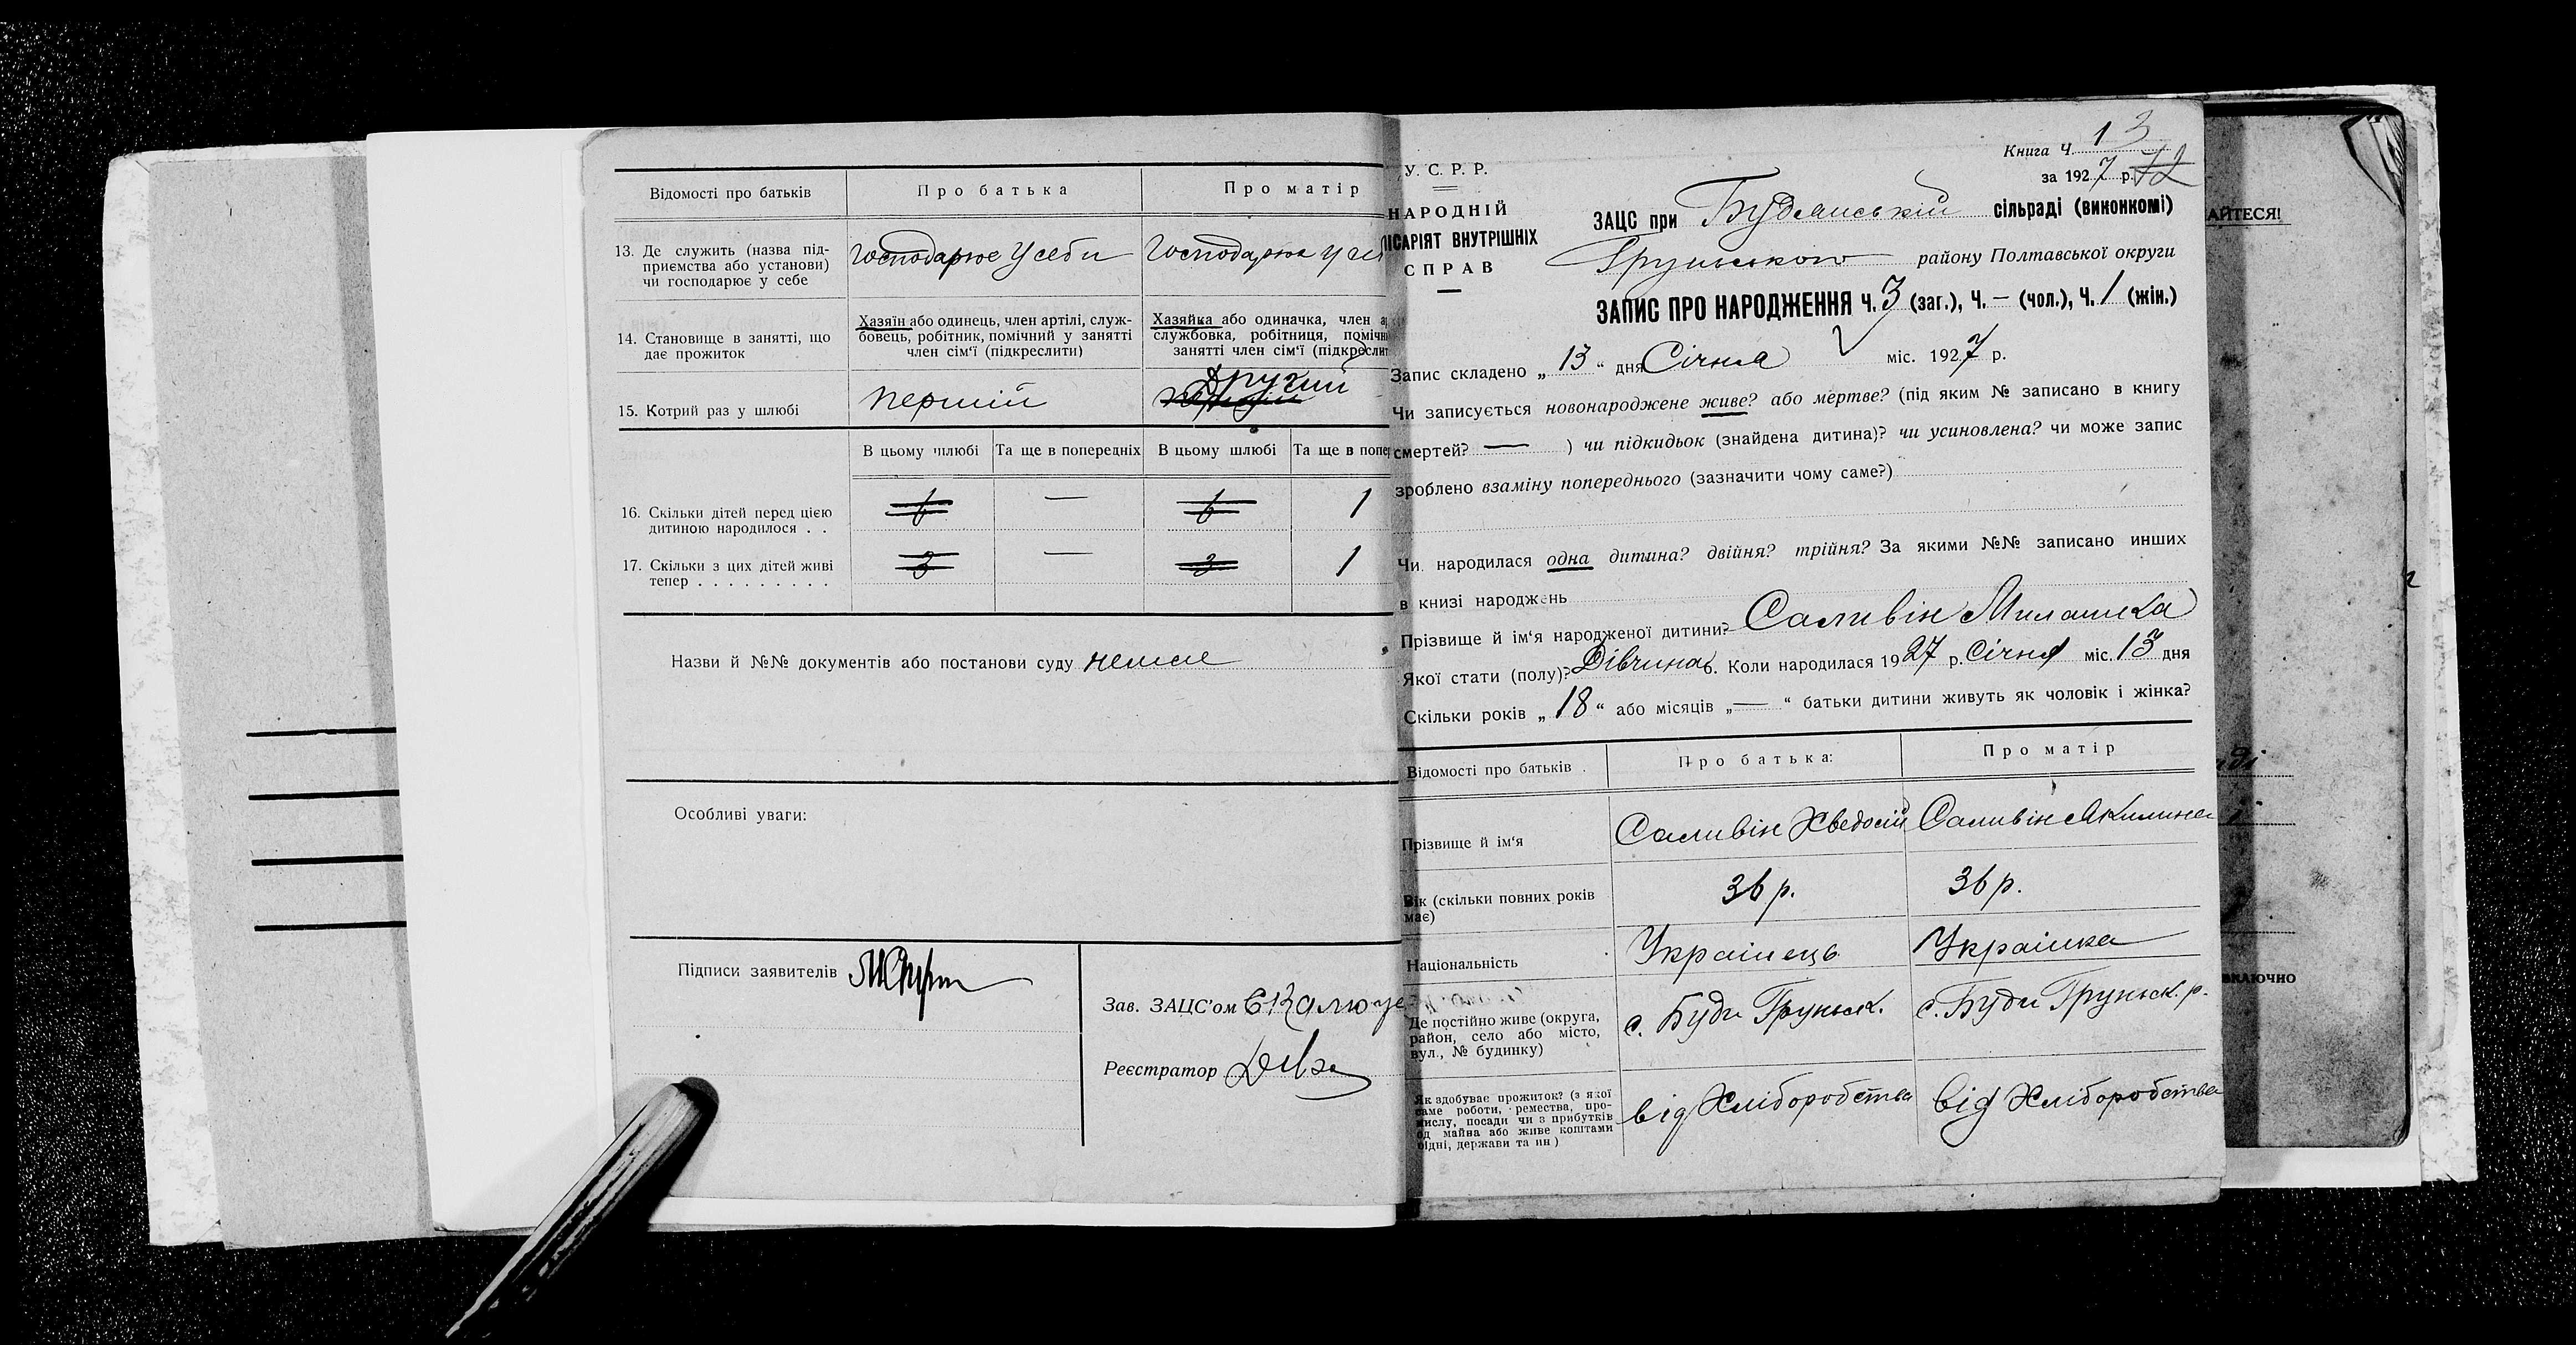 Відомості про батьків
Про батька
Про матір
13. Де служить (назва під-
приємства або установи)
чи господарює у себе
Господарює у себи
Господарює у себ
14. Становище в занятті, що
дає прожиток
Хазяїн або одинець, член артілі, служ-
бовець, робітник, помічний у занятті
член сім'ї (підкреслити)
Хазяйка або одиначка, член а
службовка, робітниця, помічн
занятті член сім'ї (підкреслит
15. Котрий раз у шлюбі
першій
Другий
В цьому шлюбі
Та ще в попередніх
В цьому шлюбі
Та ще в попер
16. Скільки дітей перед цією
дитиною народилося . .
6 — 6 1
17. Скільки з цих дітей живі
тепер . . . . . . . . .
3 — 3 1
Назви й №№ документів або постанови суду немає
Особливі уваги:
Підписи заявителів
Зав. ЗАЦС'ом
Реєстратор
Книга Ч. 13
за 1927 р. 72
У. С. Р. Р.
НАРОДНІЙ
ІСАРІЯТ ВНУТРІШНІХ
СПРАВ
ЗАЦС при Будянській сільраді (виконкомі)
Груньського району Полтавської округи
ЗАПИС ПРО НАРОДЖЕННЯ Ч. 3 (заг.), Ч. — (чол.), Ч. 1 (жін.)
Запис складено „ 13 “ дня Січня міс. 1927 р.
Чи записується новонароджене живе? або мертве? (під яким № записано в книгу
смертей? — ) чи підкидьок (знайдена дитина)? чи усиновлена? чи може запис
зроблено взаміну попереднього (зазначити чому саме?)
Чи народилася одна дитина? двійня? трійня? За якими №№ записано инших
в книзі народжень
Прізвище й ім'я народженої дитини? Саливін Милашка
Якої стати (полу)? Дівчина 6. Коли народилася 1927 р. Січня міс. 13 дня
Скільки років „ 18 “ або місяців „ — “ батьки дитини живуть як чоловік і жінка?
Відомості про батьків
Про батька:
Про матір
Прізвище й ім'я
Саливін Хведосій
Саливін Акилина
Вік (скільки повних років
має)
36 р.
36 р.
Національність
Українець
Українка
Де постійно живе (округа,
район, село або місто,
вул., № будинку)
с. Буди Груньск.
с. Буди Груньск. р.
Як здобуває прожиток? (з якої
саме роботи, ремества, про-
мислу, посади чи з прибутків
од майна або живе коштами
рідні, держави та ин)
від Хліборобства
від Хліборобства
АЙТЕСЯ!
включно